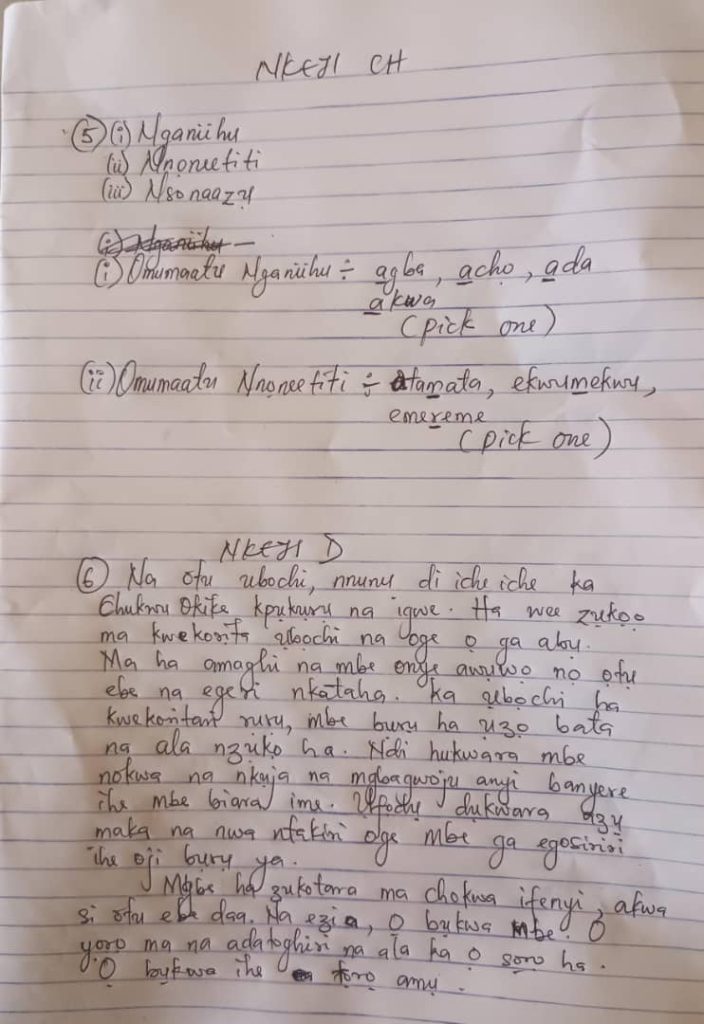 NKEJI CH
(5) (i) Nganiihu
(ii) Nnọneetiti
(iii) Nsonaazụ
(i) Nganiihu —
(i) Omumaatu Nganiihu ÷ agba, achọ, ada
akwa
(pick one)
(ii) Omumaatu Nnọneetiti ÷ atamata, ekwumekwu,
emereme
(pick one)
NKEJI D
(6) Na otu ubochi, nnunu di iche iche ka
Chukwu Okike kpukuru na igwe. Ha wee zukọọ
ma kwekorita ụbọchi na oge ọ ga abu.
Ma ha amaghi na mbe onye awuwo nọ ọtu
ebe na egeri nkataha. ka ụbọchi ha
kwekọntara ruru, mbe buru ha ụzọ bata
na ala nzukọ ha. Ndi hukwara mbe
nokwa na nkuja na mgbagwoju anyi banyere
ihe mbe biara ime. Ufodu dukwara azụ
maka na nwa ntakiri oge mbe ga egosiriri
ihe oji bụrụ ya.
Mgbe ha zukotara ma chokwa ifenyi, akwa
si otu ebe daa. Na ezia, ọ bụkwa mbe. O
yoro ma na adatoghiri na ala ka ọ soro ha.
Ọ bụkwa ihe tọrọ amụ.